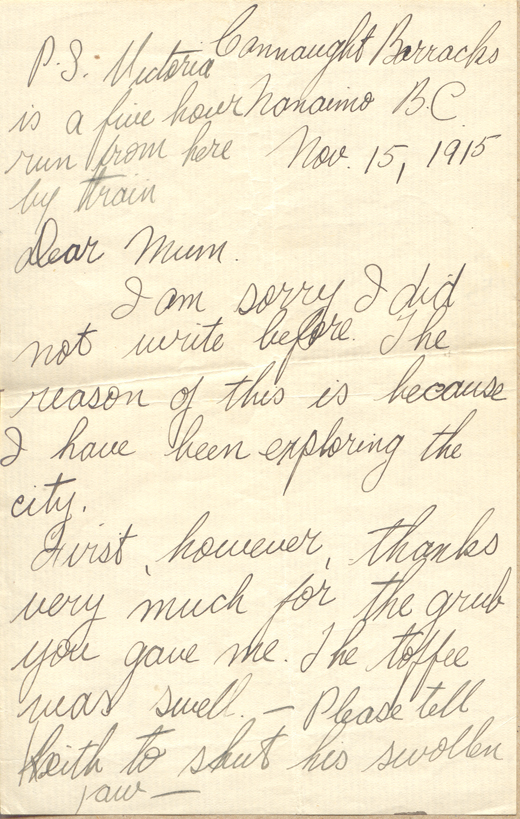 Connaught Barracks
Nanaimo B.C.
Nov. 15, 1915
P.S. Victoria
is a five hour
run from here
by train
Dear Mum.
I am sorry I did
not write before. The
reason of this is because
I have been exploring the
city.
First, however, thanks
very much for the grub
you gave me. The toffee
was swell. — Please tell
Keith to shut his swollen
jaw —